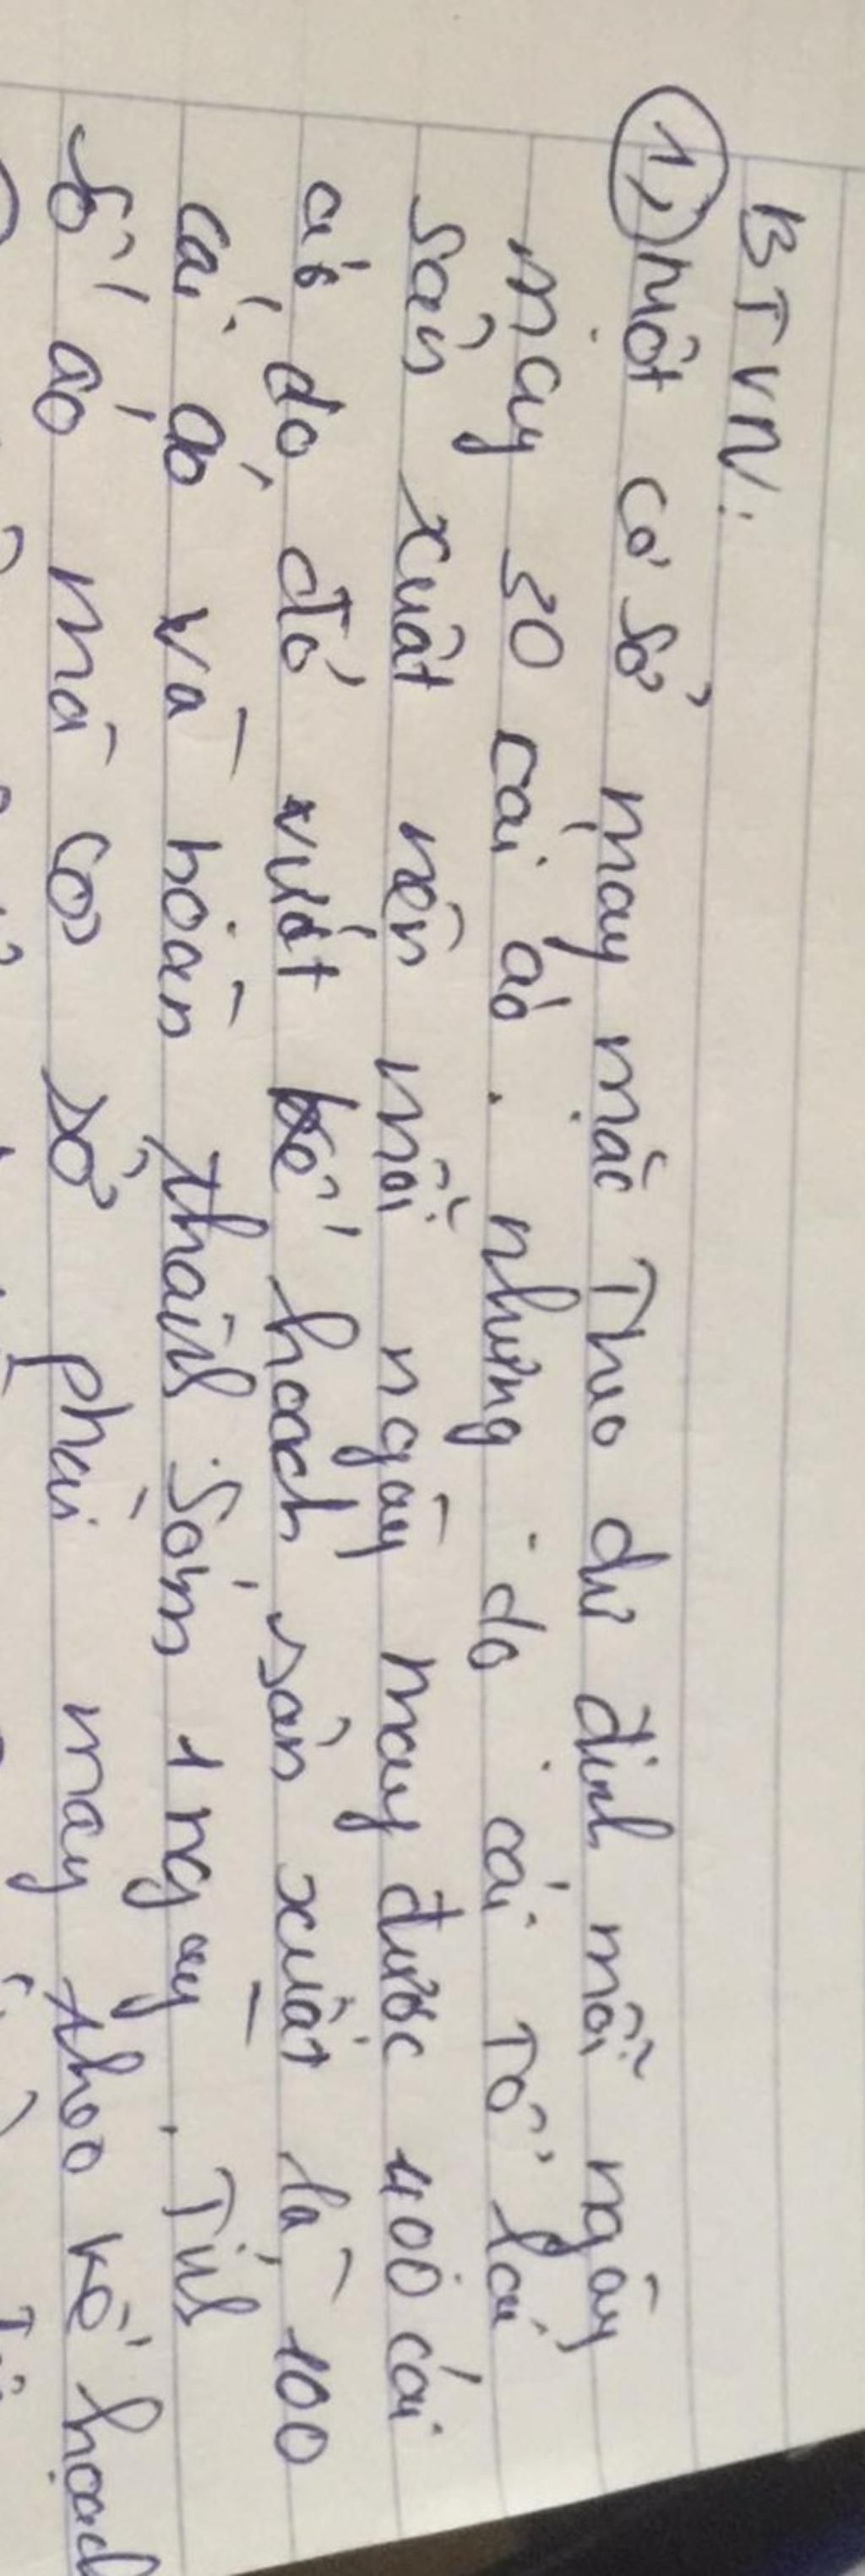 BTVN:
1, Một cơ sở may mặc Theo dự định mỗi ngày
may 30 cái áo. nhưng do cải Tổ lại
sản xuất nên mỗi ngày may được 400 cái
áo, do, đó vượt kế hoạch sản xuất là 100
cái áo và hoàn thành sớm 1 ngày. Tính
số áo mà cơ sở phải may theo kế hoạch